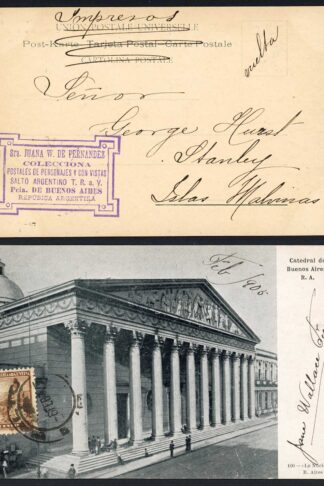 Impresos
UNION POSTALE UNIVERSELLE
Post-Karte - Tarjeta Postal - Carte Postale
CARTOLINA POSTALE
vuelta
Señor
George Hurst
Stanley
Islas Malvinas
Sra. JUANA W. DE FERNANDEZ
COLECCIONA
POSTALES DE PERSONAJES Y CON VISTAS
SALTO ARGENTINO T. R. a V.
Pcia. DE BUENOS AIRES
REPÚBLICA ARGENTINA
Feb/906
Catedral de
Buenos Aires
R. A.
Juana Wallace
100
B. Aires